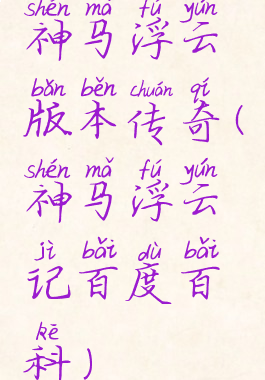 shén mǎ fú yún
神马浮云
bǎn běn chuán qí
版本传奇(
shén mǎ fú yún
神马浮云
jì bǎi dù bǎi
记百度百
kē
科)